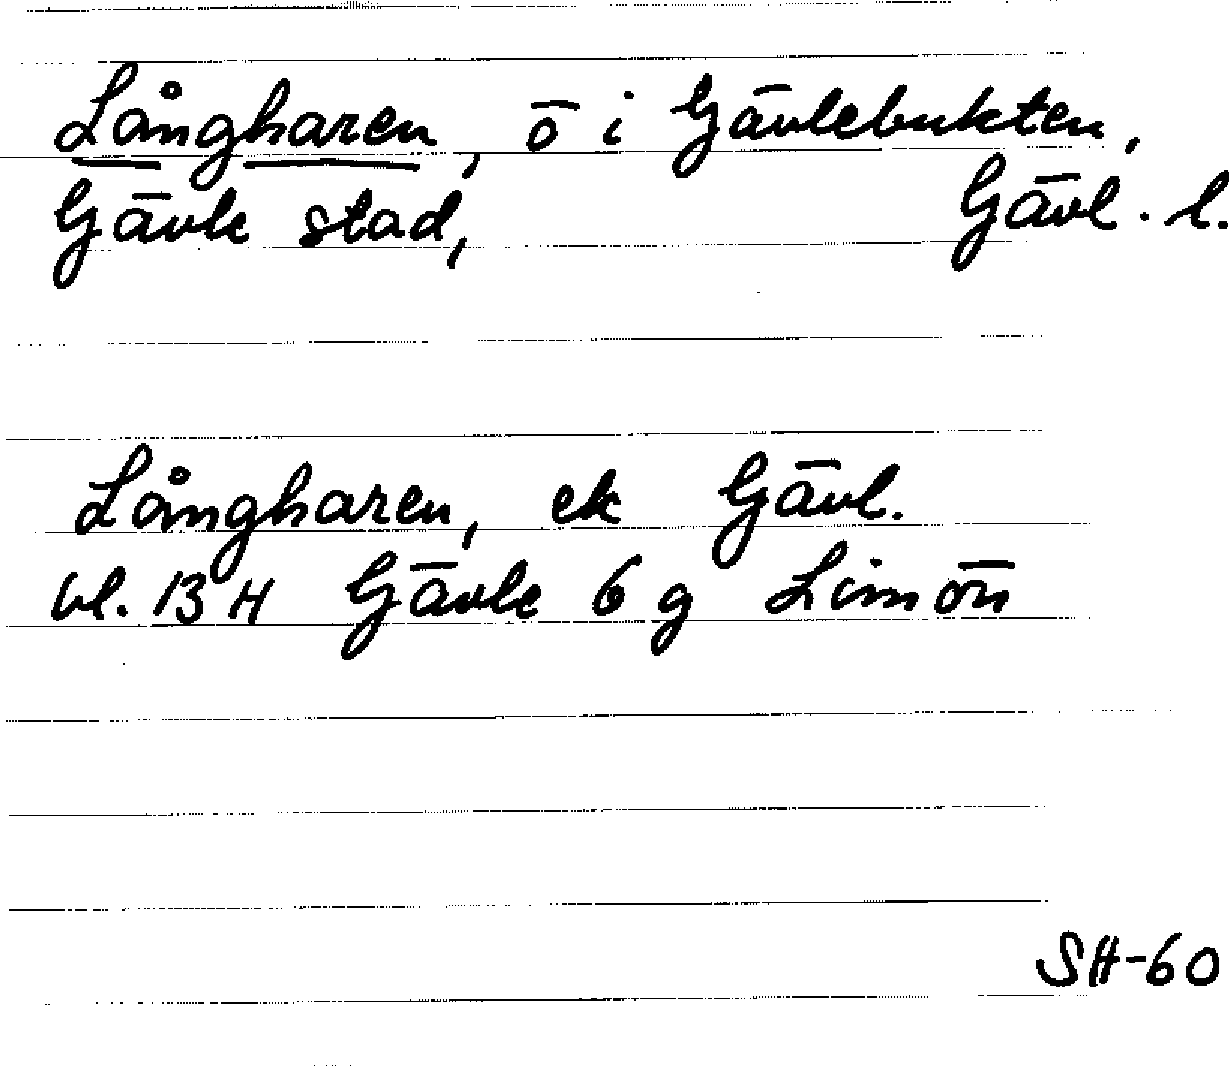 Långharen, ö i Gävlebukten,
Gävle stad, Gävl. l.
Långharen, ek Gävl.
bl. 13 H Gävle 6 g Limön
SH-60